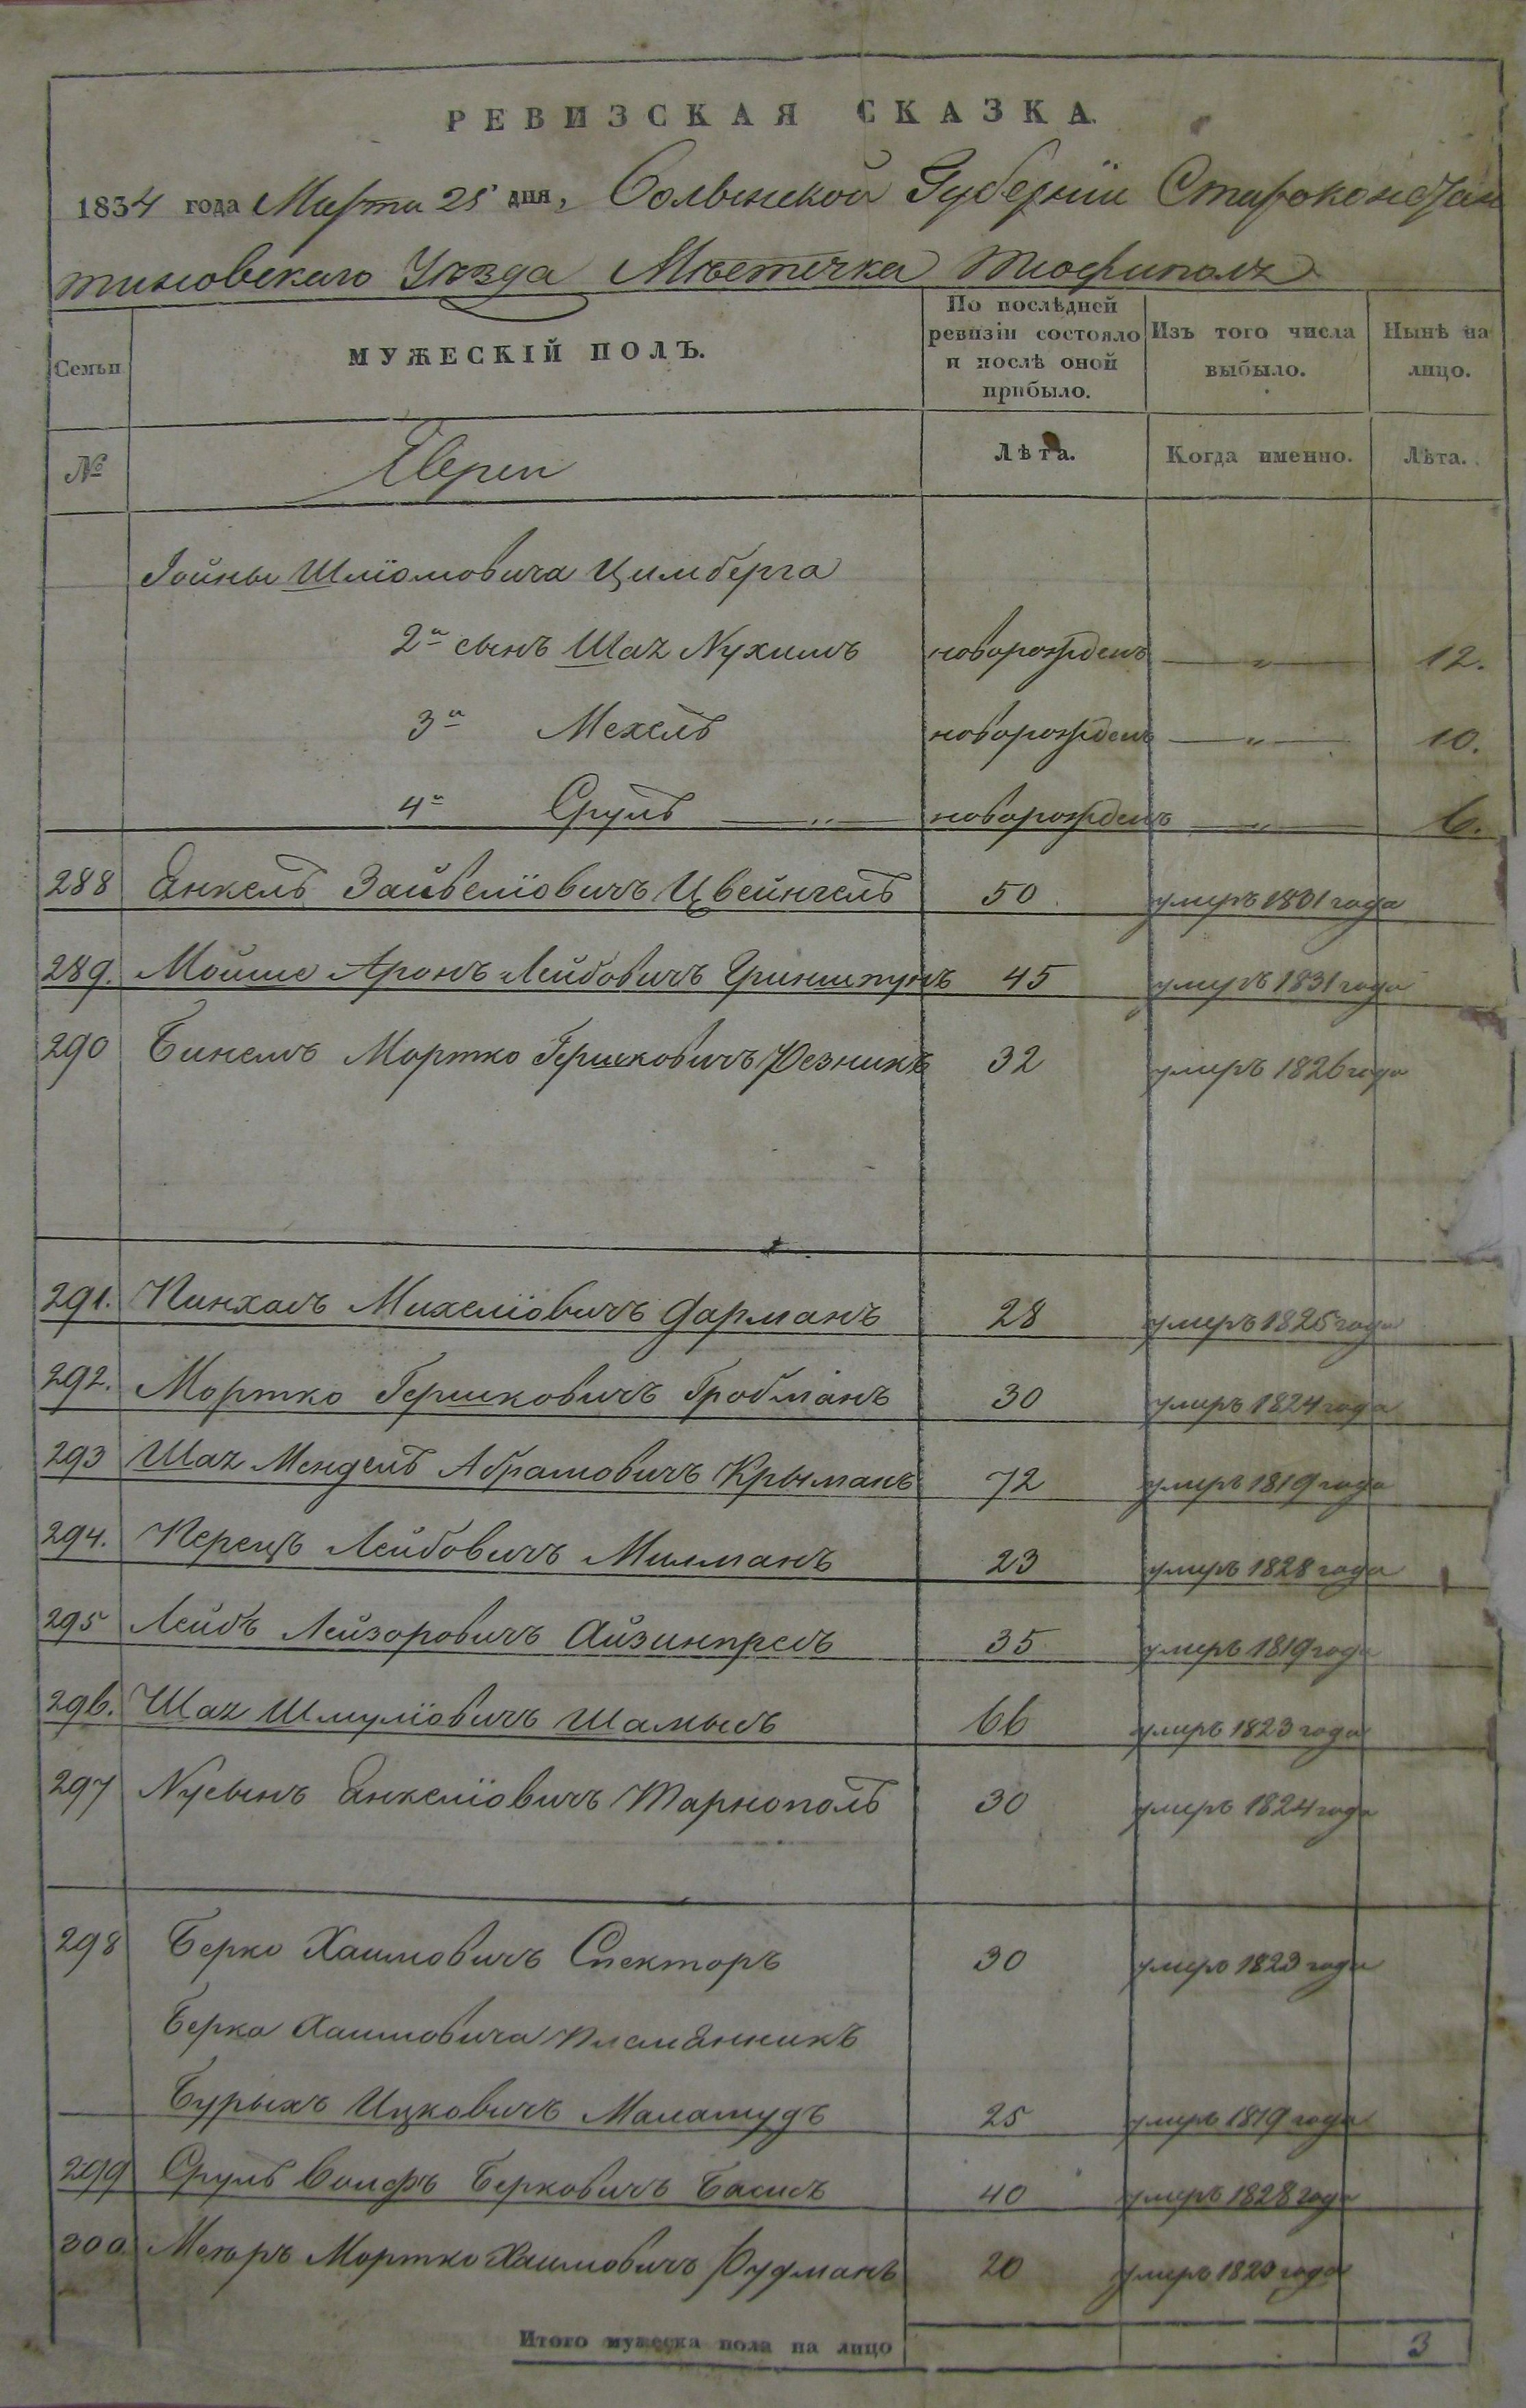 РЕВИЗСКАЯ СКАЗКА.
1834 года Марта 25 дня, Волынской Губерніи Староконстан
тиновскаго Уѣзда Мѣстечка Тіофиполь
Семьи
МУЖЕСКІЙ ПОЛЪ.
По послѣдней ревизіи состояло и послѣ оной прибыло.
Изъ того числа выбыло.
Нынѣ на лицо.
№ Евреи Лѣта. Когда именно. Лѣта.
Іойны Шліомовича Цимберга
2й сынъ Шая Нухимъ новорожденъ — „ — 12.
3й Мехель новорожденъ — „ — 10.
4й Сруль — „ — новорожденъ — „ — 6.
288 Янкель Зайвеліовичъ Цвейнгель 50 умеръ 1831 года
289. Мойше Аронъ Лейбовичъ Гриншпунъ 45 умеръ 1831 года
290 Бинемъ Мортко Гершковичъ Резникъ 32 умеръ 1826 года
291. Пинхасъ Михеліовичъ Фарманъ 28 умеръ 1825 года
292. Мортко Гершковичъ Гробманъ 30 умеръ 1824 года
293 Шая Мендель Абрамовичъ Крыманъ 72 умеръ 1819 года
294. Перецъ Лейбовичъ Милманъ 23 умеръ 1828 года
295 Лейбъ Лейзоровичъ Айзинпресъ 35 умеръ 1819 года
296. Шая Шмуліовичъ Шамысъ 66 умеръ 1823 года
297 Нусынъ Янкеліовичъ Тарнополь 30 умеръ 1824 года
298 Берко Хаимовичъ Спекторъ 30 умеръ 1823 года
Берка Хаимовича Племянникъ
Бурыхъ Ицковичъ Маламудъ 25 умеръ 1819 года
299 Сруль Волфъ Берковичъ Басисъ 40 умеръ 1828 года
300 Меюръ Мортко Хаимовичъ Рудманъ 20 умеръ 1820 года
Итого мужеска пола на лицо 3